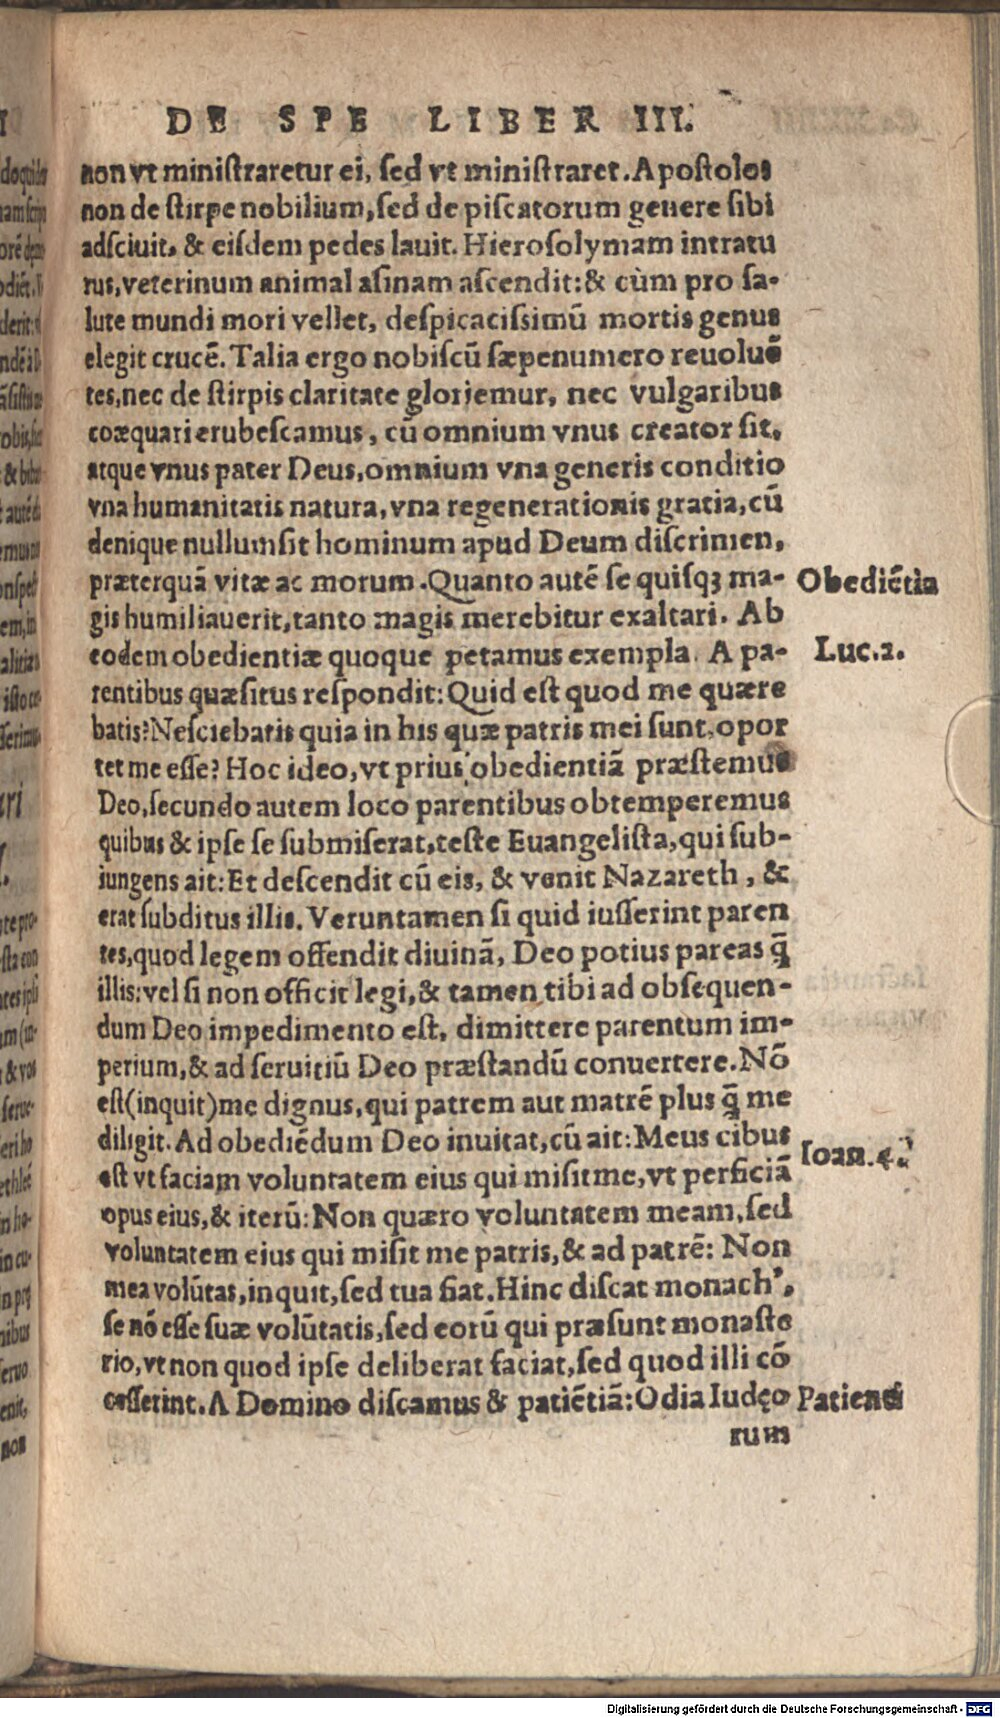 DE SPE LIBER III.
non vt miniſtraretur ei, ſed vt miniſtraret. Apoſtolos
non de ſtirpe nobilium, ſed de piſcatorum genere ſibi
adſciuit, & eiſdem pedes lauit. Hieroſolymam intratu
rus, veterinum animal aſinam aſcendit: & cùm pro ſa-
lute mundi mori vellet, deſpicaciſsimū mortis genus
elegit crucē. Talia ergo nobiſcū ſæpenumero reuoluē
tes, nec de ſtirpis claritate gloriemur, nec vulgaribus
coæquari erubeſcamus, cū omnium vnus creator ſit,
atque vnus pater Deus, omnium vna generis conditio
vna humanitatis natura, vna regenerationis gratia, cū
denique nullum ſit hominum apud Deum diſcrimen,
præterquā vitæ ac morum. Quanto autē ſe quiſqꝫ ma-
Obediētia
gis humiliauerit, tanto magis merebitur exaltari. Ab
eodem obedientiæ quoque petamus exempla. A pa-
Luc.2.
rentibus quæſitus reſpondit: Quid eſt quod me quære
batis? Neſciebatis quia in his quæ patris mei ſunt, opor
tet me eſſe? Hoc ideo, vt prius obedientiā præſtemus
Deo, ſecundo autem loco parentibus obtemperemus
quibus & ipſe ſe ſubmiſerat, teſte Euangeliſta, qui ſub-
iungens ait: Et deſcendit cū eis, & venit Nazareth, &
erat ſubditus illis. Veruntamen ſi quid iuſſerint paren
tes, quod legem offendit diuinā, Deo potius pareas q̄
illis: vel ſi non officit legi, & tamen tibi ad obſequen-
dum Deo impedimento eſt, dimittere parentum im-
perium, & ad ſeruitiū Deo præſtandū conuertere. Nō
eſt (inquit) me dignus, qui patrem aut matrē plus q̄ me
diligit. Ad obediēdum Deo inuitat, cū ait: Meus cibus
Ioan.4.
eſt vt faciam voluntatem eius qui miſit me, vt perficiā
opus eius, & iterū: Non quæro voluntatem meam, ſed
voluntatem eius qui miſit me patris, & ad patrē: Non
mea volūtas, inquit, ſed tua fiat. Hinc diſcat monach',
ſe nō eſſe ſuæ volūtatis, ſed eorū qui præſunt monaſte
rio, vt non quod ipſe deliberat faciat, ſed quod illi cō
ceſſerint. A Domino diſcamus & patiētiā: Odia Iudęo
Patienti
rum
Digitalisierung gefördert durch die Deutsche Forschungsgemeinschaft - DFG